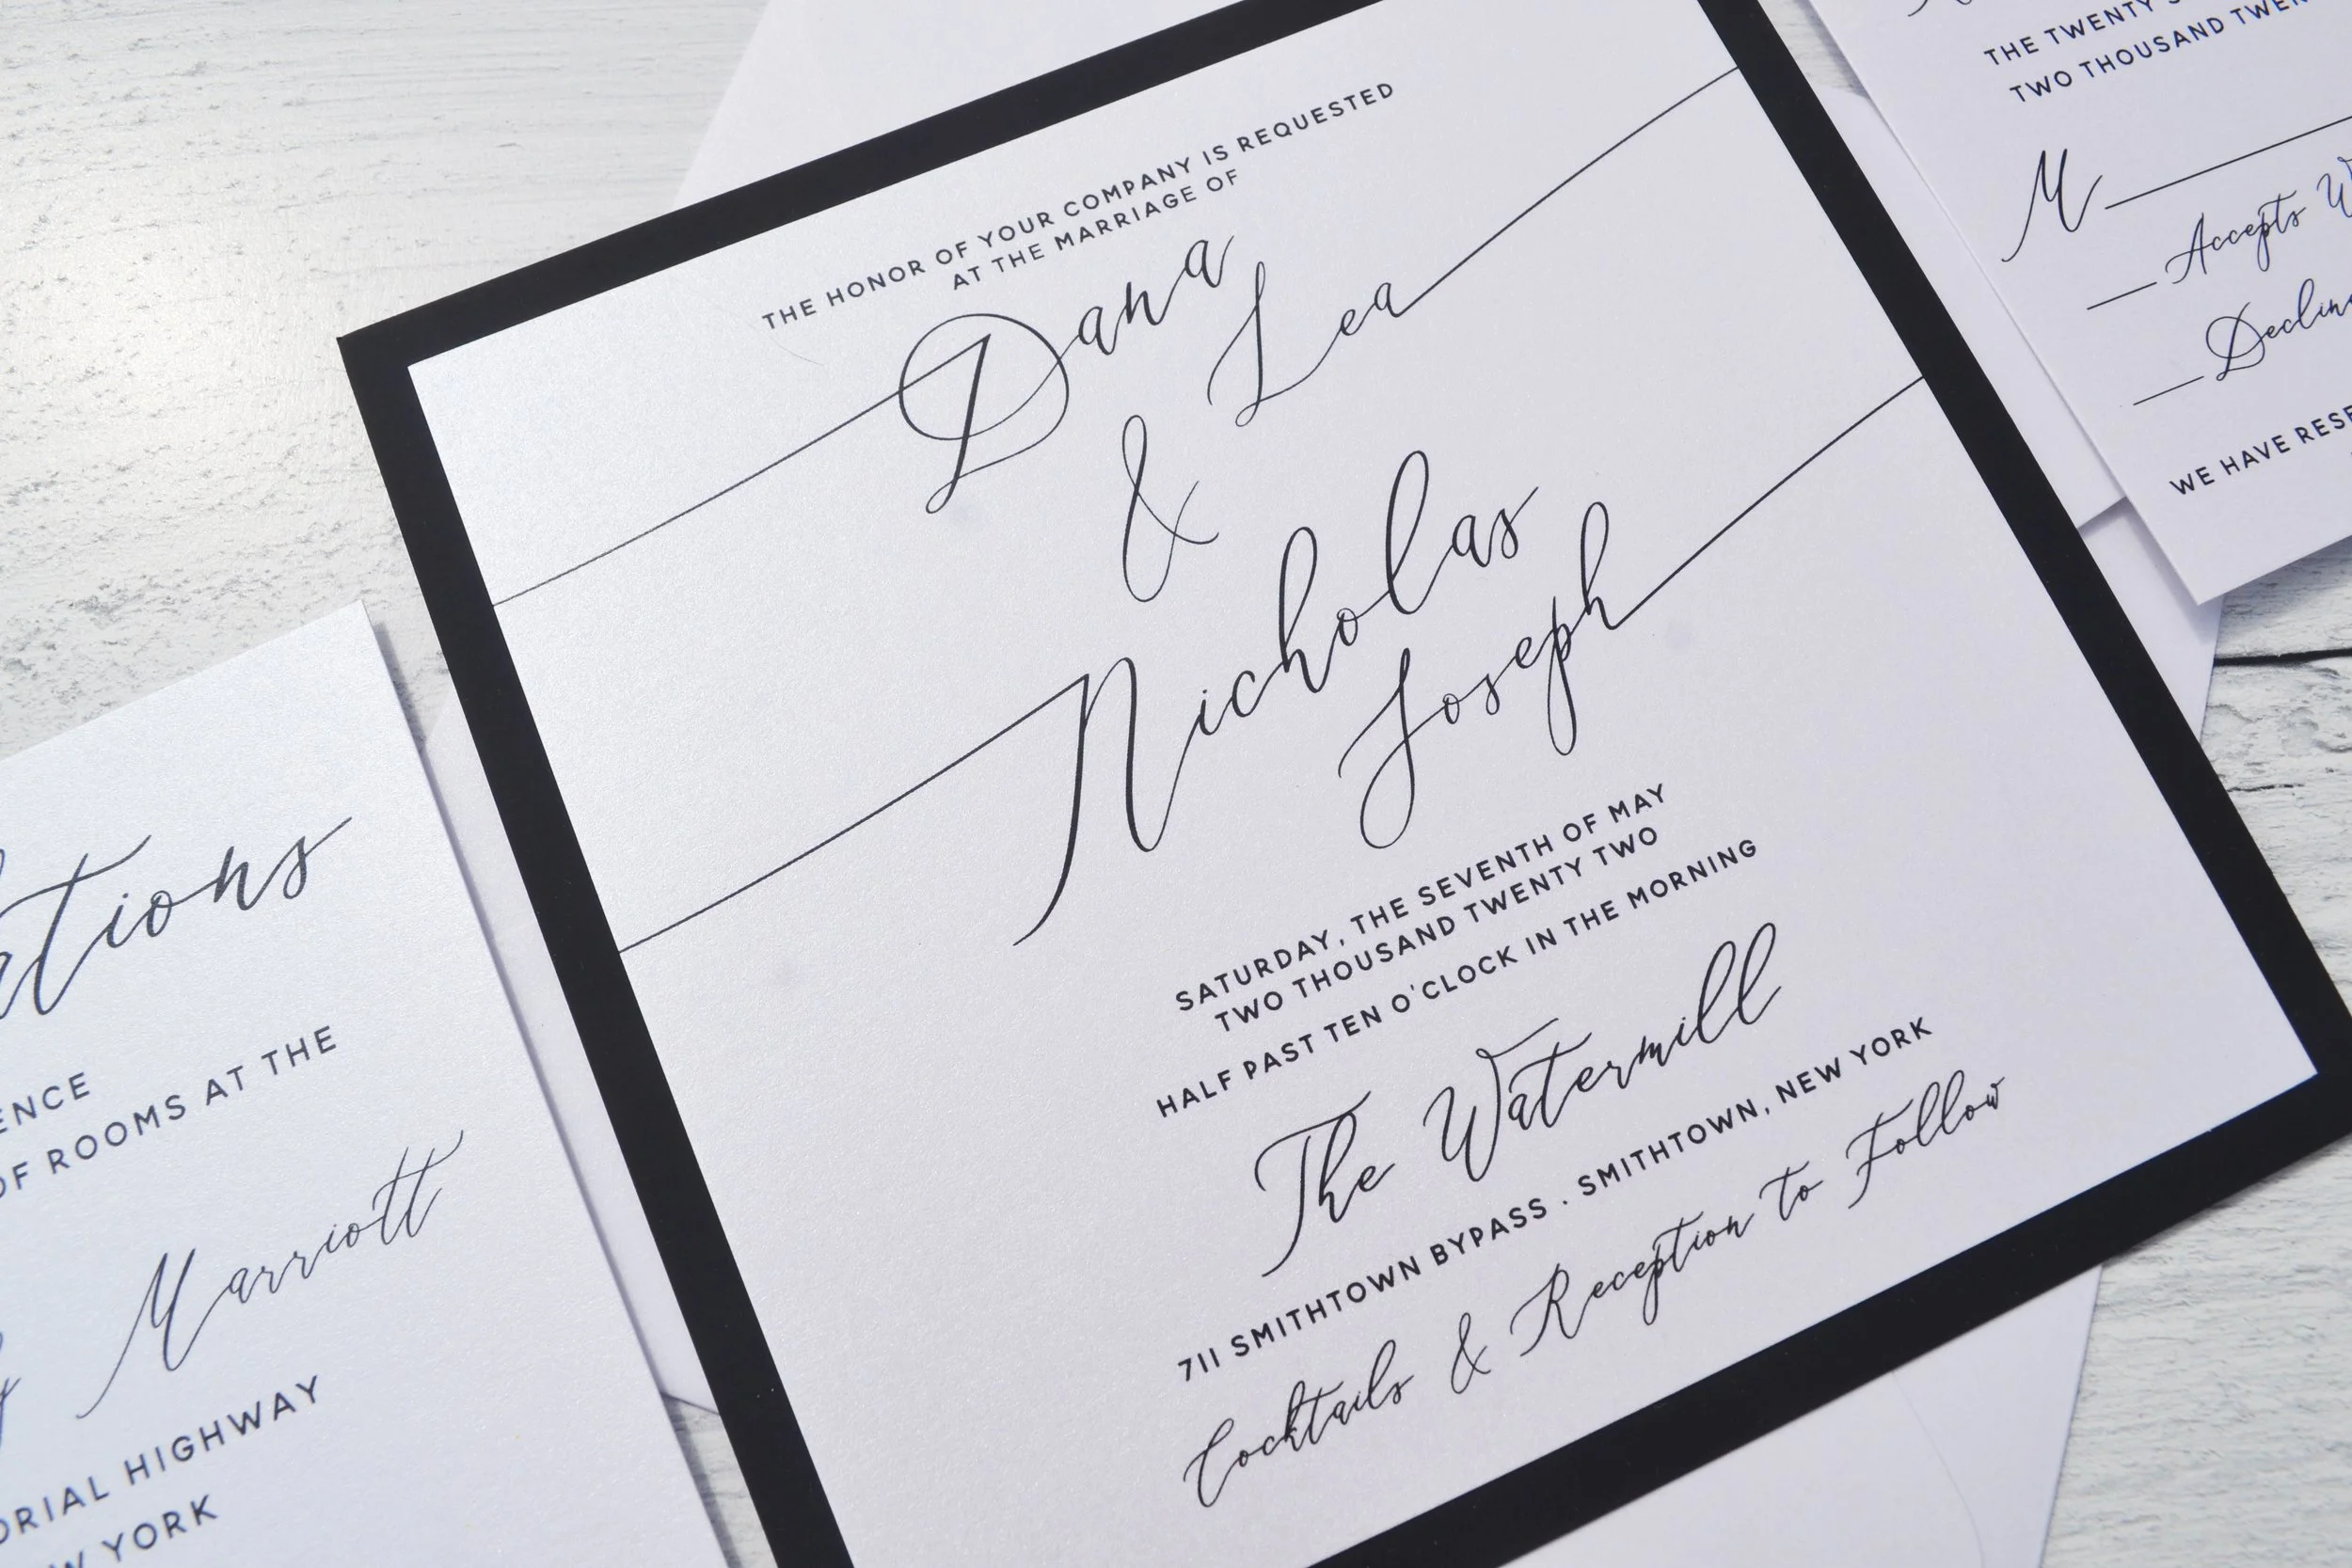 THE HONOR OF YOUR COMPANY IS REQUESTED
AT THE MARRIAGE OF
Dana
Lea
&
Nicholas
Joseph
SATURDAY, THE SEVENTH OF MAY
TWO THOUSAND TWENTY TWO
HALF PAST TEN O'CLOCK IN THE MORNING
The Watermill
711 SMITHTOWN BYPASS . SMITHTOWN, NEW YORK
Cocktails & Reception to Follow
ations
ENCE
OF ROOMS AT THE
Marriott
ORIAL HIGHWAY
W YORK
THE TWENTY
TWO THOUSAND TWEN
M
Accepts W
Declin
WE HAVE RESE